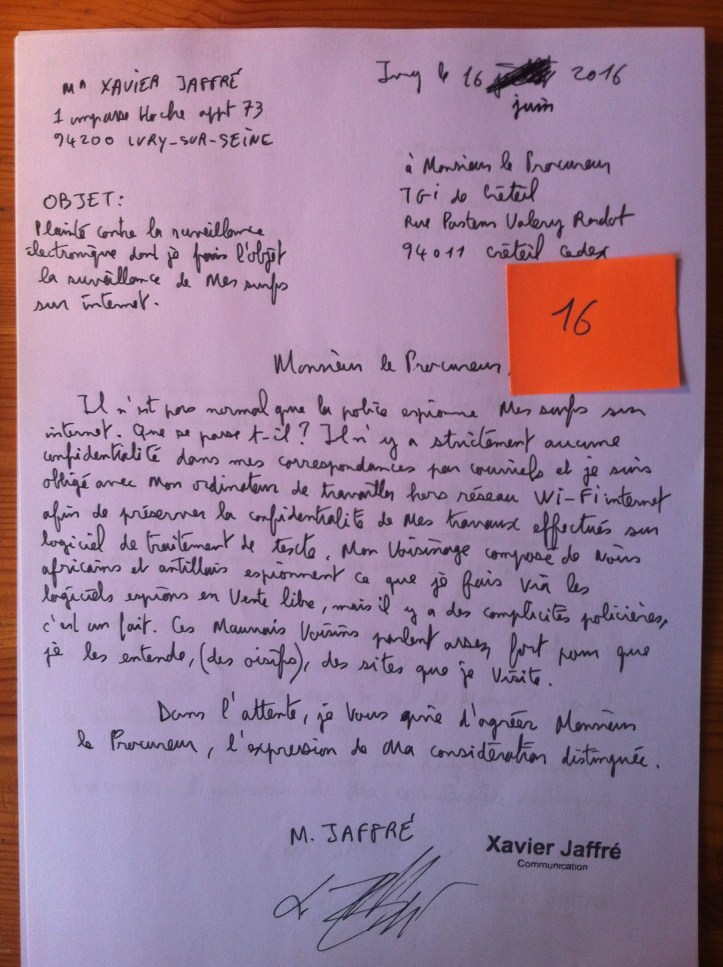 Mr XAVIER JAFFRÉ
1 impasse Hoche appt 73
94200 IVRY-SUR-SEINE
Ivry le 16 2016
juin
à Monsieur le Procureur
TGI de Créteil
Rue Pasteur Valery Radot
94011 Créteil cedex
OBJET:
Plainte contre la surveillance
électronique dont je fais l'objet
la surveillance de mes surfs
sur internet.
16
Monsieur le Procureur,
Il n'est pas normal que la police espionne mes surfs sur
internet. Que se passe t-il? Il n'y a strictement aucune
confidentialité dans mes correspondances par courriels et je suis
obligé avec mon ordinateur de travailler hors réseau Wi-Fi internet
afin de préserver la confidentialité de mes travaux effectués sur
logiciel de traitement de texte. Mon voisinage composé de noirs
africains et antillais espionnent ce que je fais via les
logiciels espions en vente libre, mais il y a des complicités policières,
c'est un fait. Ces mauvais voisins parlent assez fort pour que
je les entende, (des oisifs), des sites que je visite.
Dans l'attente, je vous prie d'agréer Monsieur
le Procureur, l'expression de ma considération distinguée.
M. JAFFRÉ
Xavier Jaffré
Communication